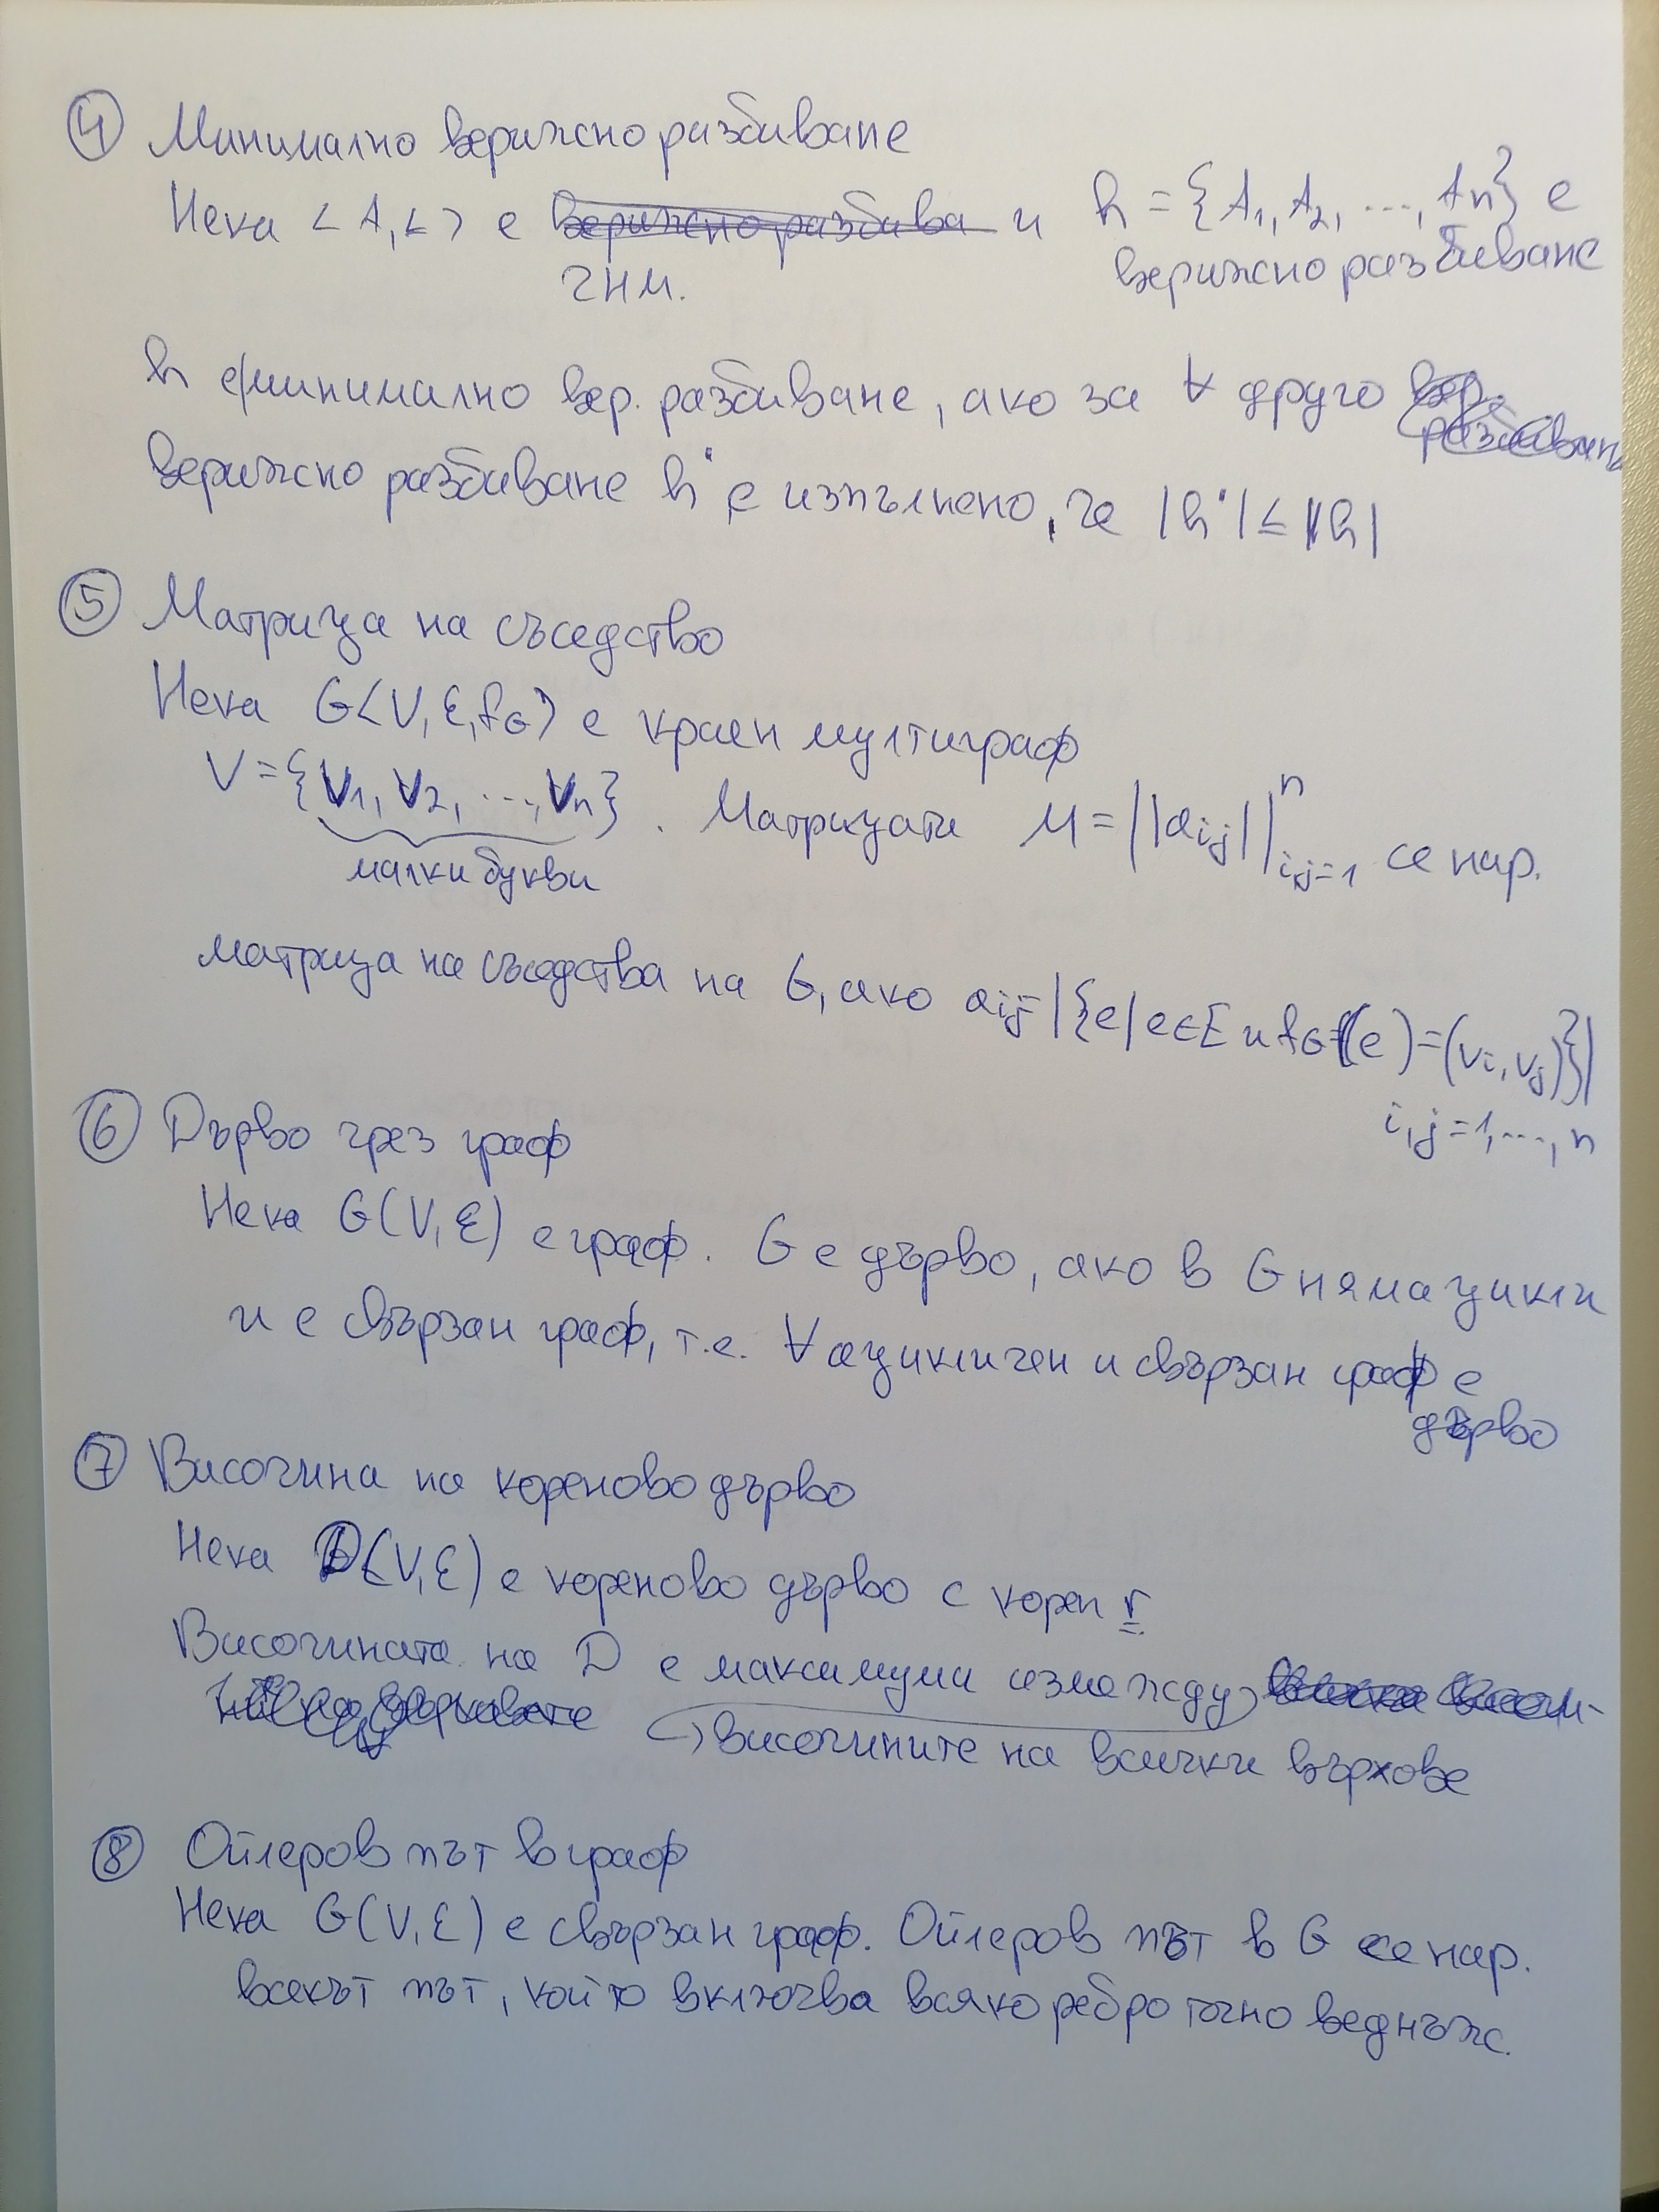 ④ Минимално верижно разбиване
Нека <A,≤> е верижно разбива и h = {A1, A2, ..., An} е
ЧНМ. верижно разбиване
h е минимално вер. разбиване, ако за ∀ друго вер.
разбиван
верижно разбиване h' е изпълнено, че |h'| ≤ |h|
⑤ Матрица на съседство
Нека G<V, E, fG> е краен мултиграф
V={v1, v2, ..., vn}. Матрицата M = ||aij||ⁿ i,j=1 се нар.
малки букви
матрица на съседства на G, ако aij=|{e|e∈E и fG(e)=(vi, vj)}|
i,j=1,...,n
⑥ Дърво чрез граф
Нека G(V,E) е граф. G е дърво, ако в G няма цикли
и е свързан граф, т.е. ∀ ацикличен и свързан граф е
дърво
⑦ Височина на кореново дърво
Нека D(V,E) е кореново дърво с корен r
Височината на D е максимума измежду
височините на всички върхове
⑧ Ойлеров път в граф
Нека G(V,E) е свързан граф. Ойлеров път в G се нар.
всекът път, който включва всяко ребро точно веднъж.